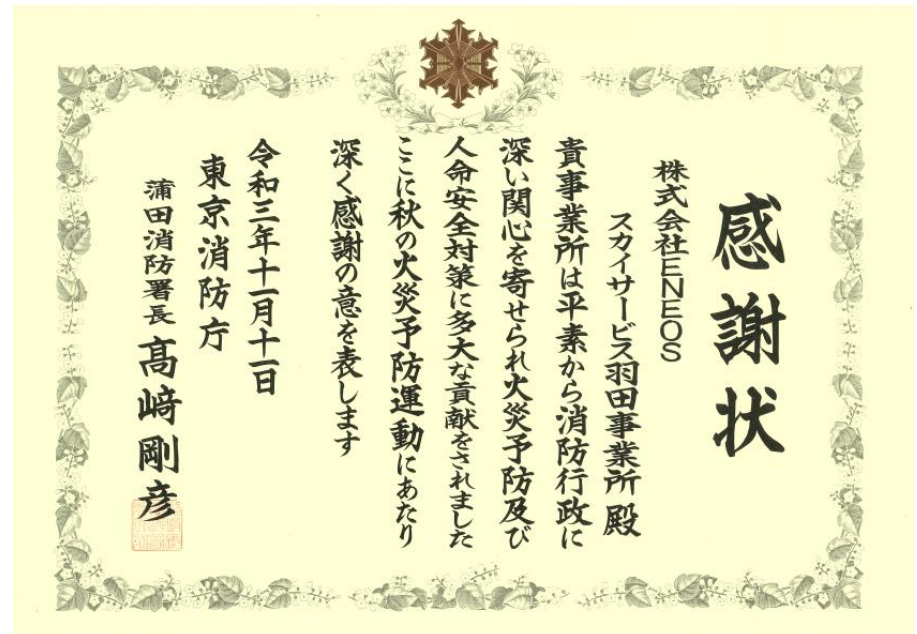 感謝状
株式会社ENEOS
スカイサービス羽田事業所 殿
貴事業所は平素から消防行政に
深い関心を寄せられ火災予防及び
人命安全対策に多大な貢献をされました
ここに秋の火災予防運動にあたり
深く感謝の意を表します
令和三年十一月十一日
東京消防庁
蒲田消防署長 髙﨑剛彦